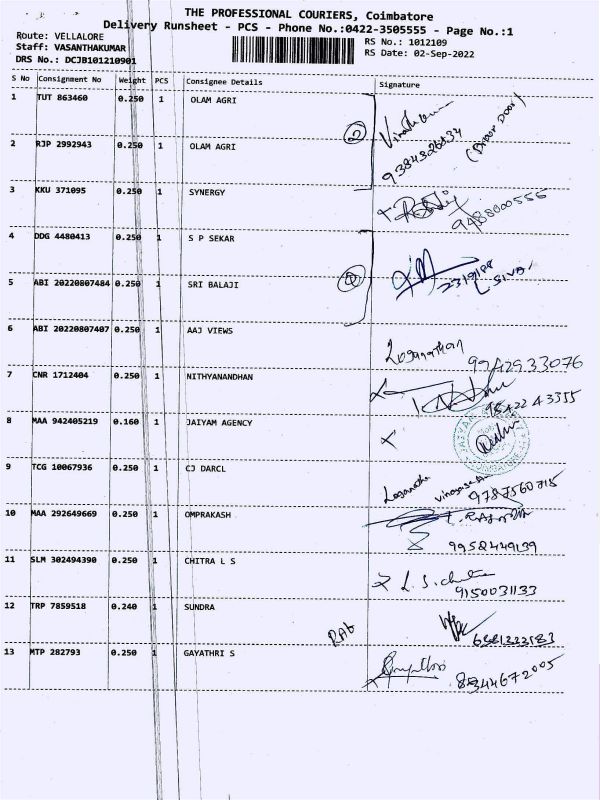 THE PROFESSIONAL COURIERS, Coimbatore
Delivery Runsheet - PCS - Phone No.:0422-3505555 - Page No.:1
Route: VELLALORE
Staff: VASANTHAKUMAR
DRS No.: DCJB101210901
RS No.: 1012109
RS Date: 02-Sep-2022
S No Consignment No Weight PCS Consignee Details Signature
1 TUT 863460 0.250 1 OLAM AGRI
(Droop Door)
2 RJP 2992943 0.250 1 OLAM AGRI
3 KKU 371095 0.250 1 SYNERGY
9488000556
4 DDG 4480413 0.250 1 S P SEKAR
5 ABI 20220807484 0.250 1 SRI BALAJI
L. SIVA
6 ABI 20220807407 0.250 1 AAJ VIEWS
Loganathan
9942933076
7 CNR 1712404 0.250 1 NITHYANANDHAN
9842243355
8 MAA 942405219 0.160 1 JAIYAM AGENCY
9 TCG 10067936 0.250 1 CJ DARCL
9787560715
10 MAA 292649669 0.250 1 OMPRAKASH
9958449139
11 SLM 302494390 0.250 1 CHITRA L S
L. S. chitra
9150031133
12 TRP 7859518 0.240 1 SUNDRA
13 MTP 282793 0.250 1 GAYATHRI S
8344672005